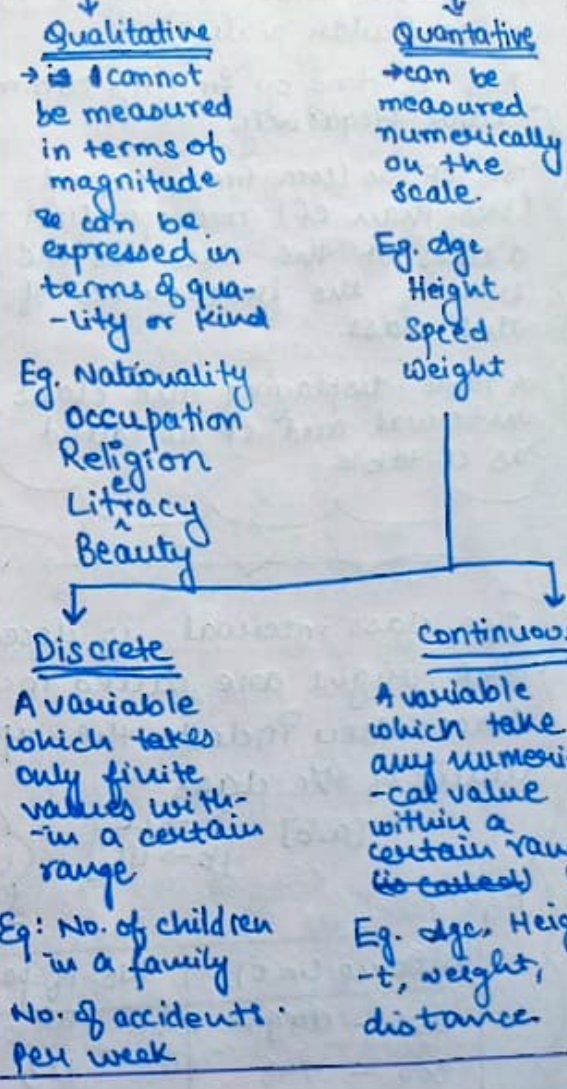 Qualitative
→ is cannot
be measured
in terms of
magnitude
can be
expressed in
terms of qua-
-lity or kind
Eg. Nationality
Occupation
Religion
Literacy
Beauty
Quantative
→can be
measured
numerically
on the
scale.
Eg. Age
Height
Speed
Weight
Discrete
A variable
which takes
only finite
values with-
-in a certain
range
Eg: No. of children
in a family
No. of accidents
per week
Continuous
A variable
which take
any numeri
-cal value
within a
certain ran
(is called)
Eg. Age, Heig
-t, weight,
distance